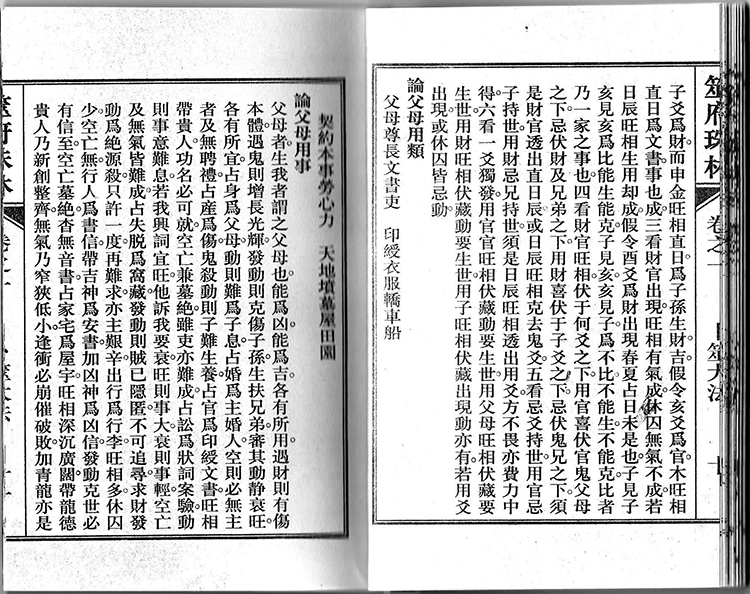 筮府珠林 卷之一 筮大法
子爻爲財而申金旺相直日爲子孫生財吉。假令亥爻爲官木旺相
直日爲文書事也成三看財官出現旺相有氣成休囚無氣不成若
日辰旺相生用却成假令酉爻爲財出現春夏占日未是也子見子
亥見亥爲比能生能克子見亥亥見子爲不比不能生不能克比者
乃一家之事也四看財官旺相伏于何爻之下用官喜伏官鬼父母
之下忌伏財及兄弟之下用財喜伏于子爻之下忌伏鬼兄之下須
是財官透出直日辰或日辰旺相克去鬼爻五看忌爻持世用官忌
子持世用財忌兄持世須是日辰旺相透出用爻方不畏亦費力中
得六看一爻獨發用官官旺相伏藏動要生世用父母旺相伏藏要
生世用財旺相伏藏動要生世用子旺相伏藏出現動亦有若用爻
出現或休囚皆忌動
論父母用類
父母尊長文書吏 印綬衣服轎車船
契約本事勞心力 天地墳墓屋田園
論父母用事
父母者生我者謂之父母也能爲凶能爲吉各有所用遇財則有傷
本體遇鬼則增長光輝發動則克傷子孫生扶兄弟審其動靜衰旺
各有所宜占身爲父母動則難爲子息占婚爲主婚人空則必無主
者及無聘禮占産爲傷鬼殺動則子難生養占官爲印綬文書旺相
帶貴人功名必可就空亡兼墓絶雖吏亦難成占訟爲狀詞案驗動
則事意難息若我興詞宜旺他訴我要衰旺則事大衰則事輕空亡
及無氣皆難成占失脱爲窩藏發動則賊已隱匿不可追尋求財發
動爲絶源殺只許一度再難求亦主艱辛出行爲行李旺相多休囚
少空亡無行人爲書信帶吉神爲安書加凶神爲凶信發動克世必
有信至空亡墓絶杳無音書占家宅爲屋宇旺相深沉廣闊帶龍德
貴人乃新創整齊無氣乃窄狹低小逢衝必崩催破敗加青龍亦是